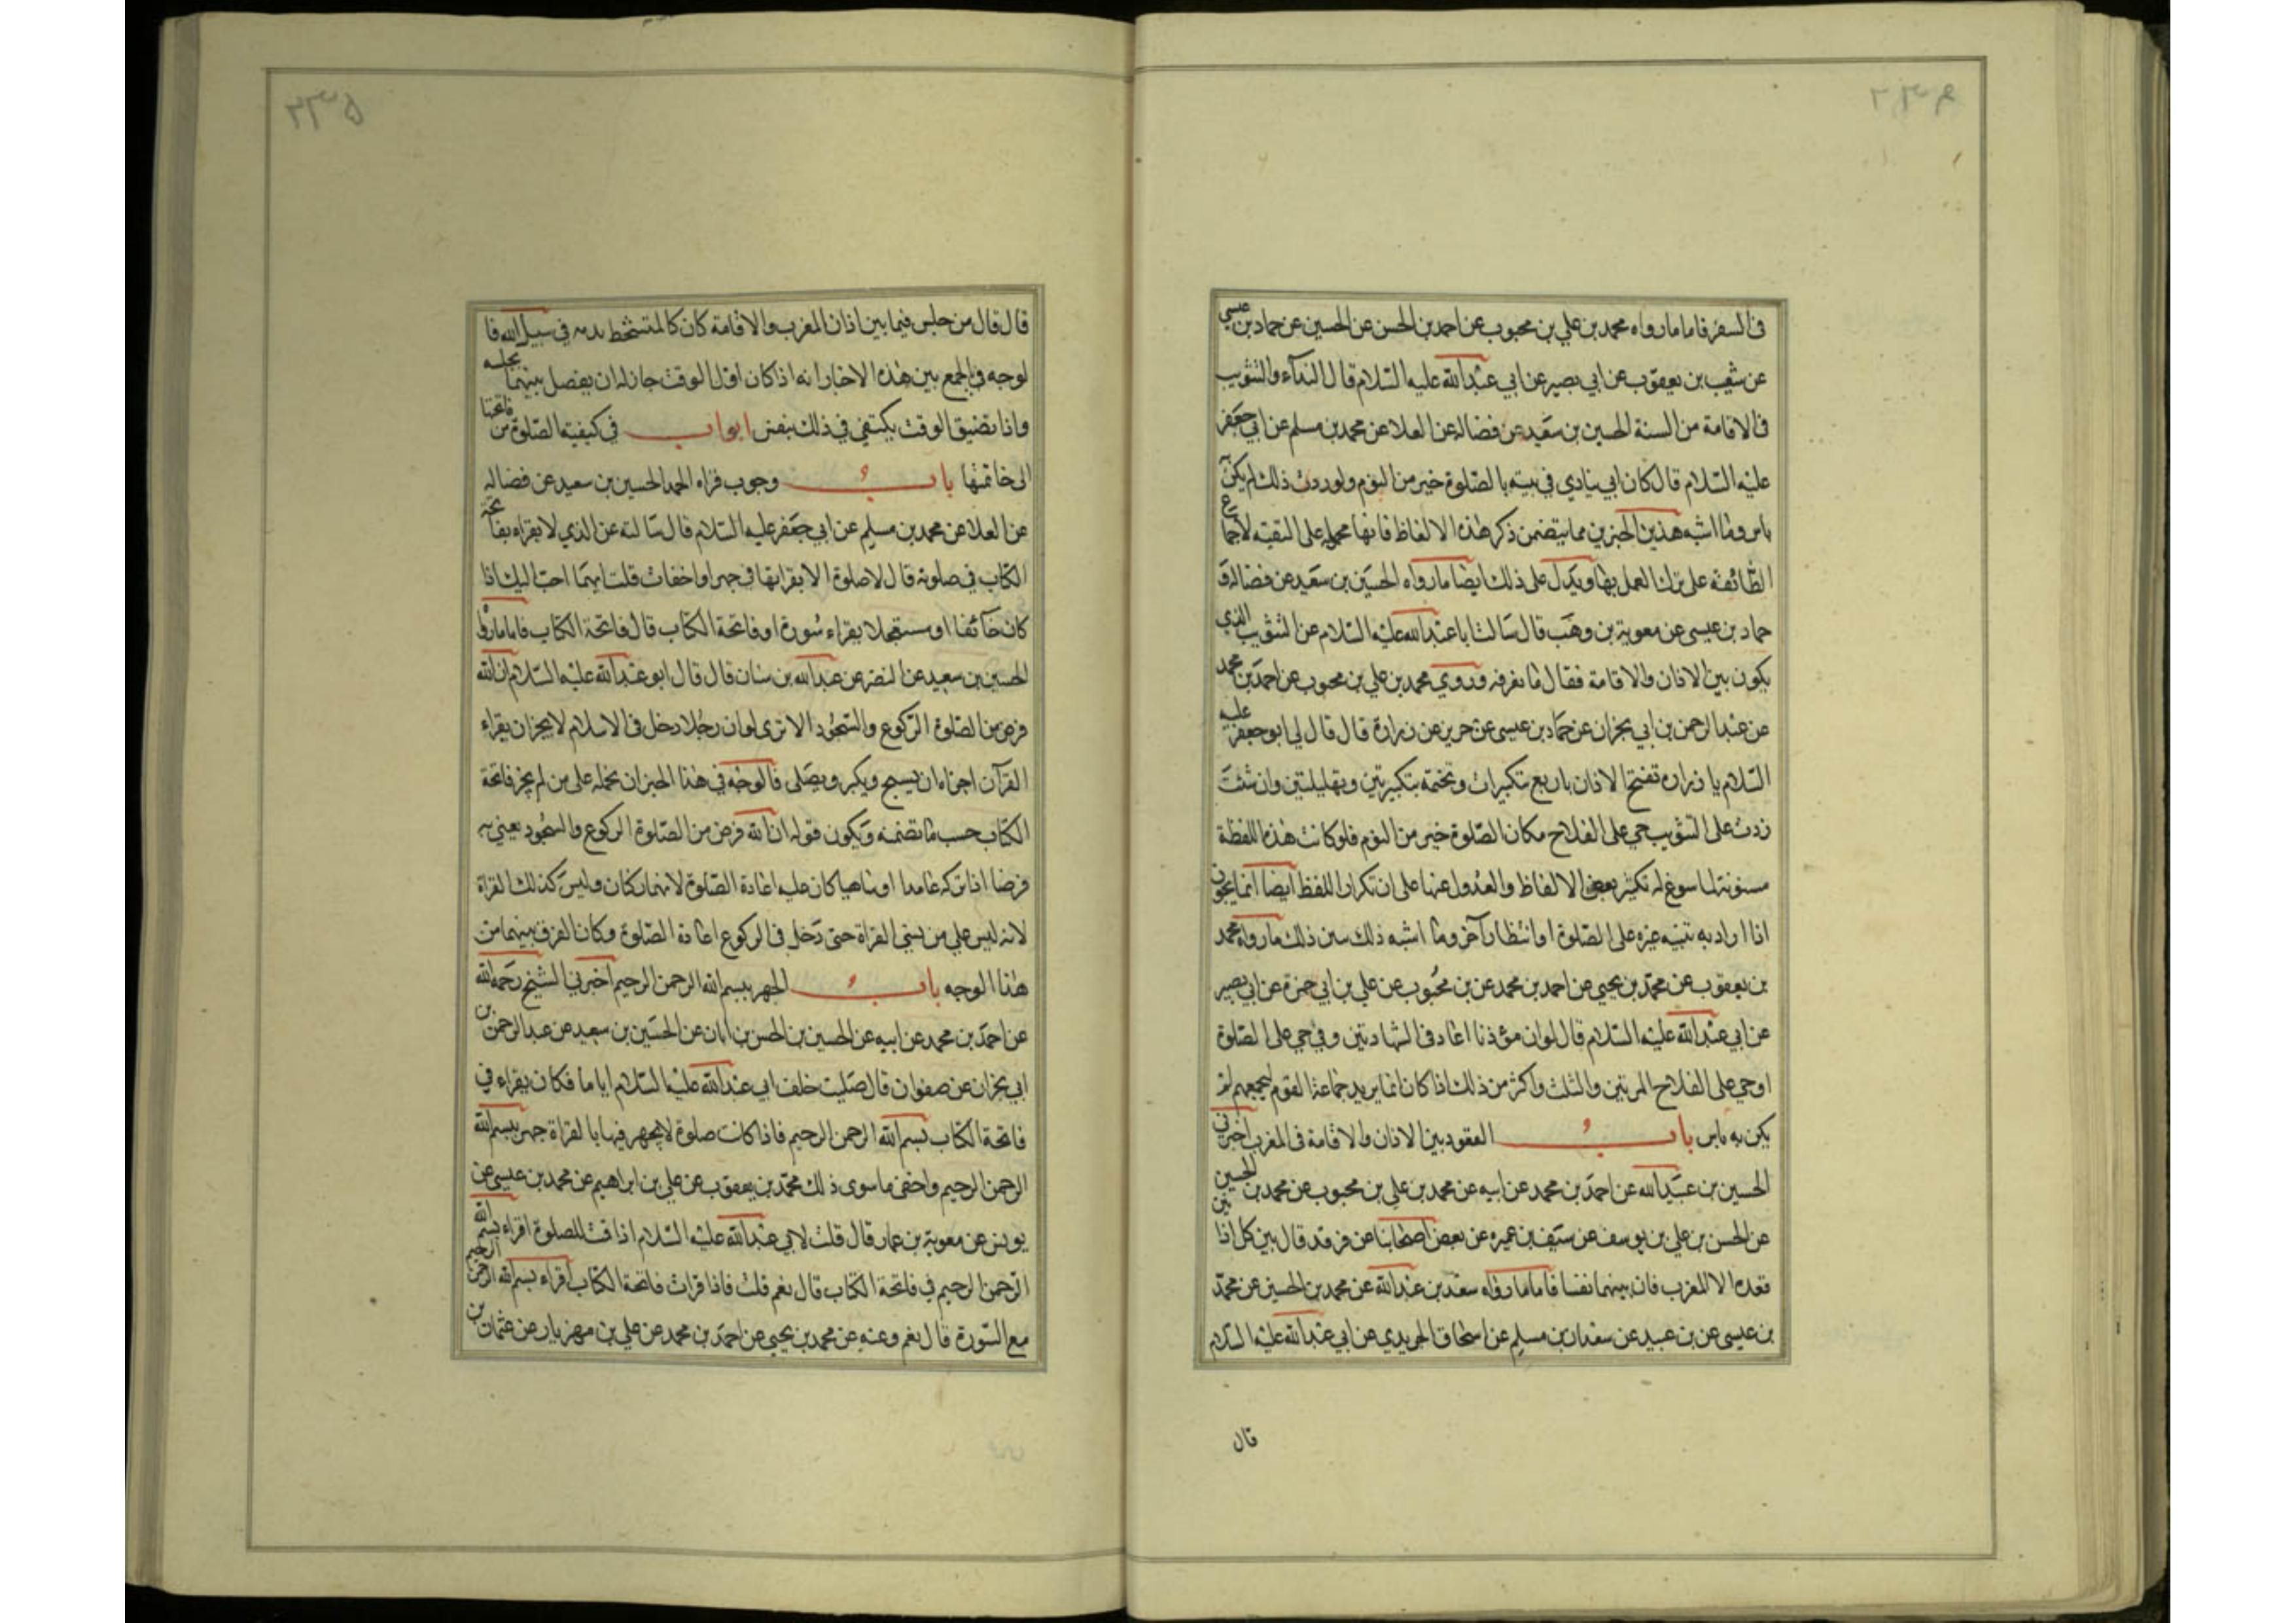 في السفر فاما ما رواه محمد بن علي بن محبوب عن احمد بن الحسن عن الحسين عن حماد بن عيسى
عن شعيب بن يعقوب عن ابي بصير عن ابي عبد الله عليه السلام قال النداء والتثويب
في الاقامة من السنة الحسين بن سعيد عن فضالة عن العلا عن محمد بن مسلم عن ابي جعفر
عليه السلام قال كان ابي ينادي في بيته بالصلوة خير من النوم ولو رددت ذلك لم يكن
باس وما اشبه هذين الخبرين مما يتضمن ذكر هذه الالفاظ فانها محمولة على التقية لاجماع
الطائفة على ترك العمل بها ويدل على ذلك ايضا ما رواه الحسين بن سعيد عن فضالة و
حماد بن عيسى عن معوية بن وهب قال سالت ابا عبد الله عليه السلام عن التثويب الذي
يكون بين الاذان والاقامة فقال ما نعرفه وروي محمد بن علي بن محبوب عن احمد بن محمد
عن عبد الرحمن بن ابي نجران عن حماد بن عيسى عن حريز عن زرارة قال قال لي ابو جعفر عليه
السلام يا زراره تفتتح الاذان باربع تكبيرات وتختمه بتكبيرتين وتهليلتين وان شئت
زدت على التثويب حي على الفلاح مكان الصلوة خير من النوم فلو كانت هذه اللفظة
مسنونة لما سوغ له تكثير بعض الالفاظ والعدول عنها على ان تكرار اللفظ ايضا انما يجوز
اذا اراد به تنبيه غيره على الصلوة او انتظار آخر وما اشبه ذلك ما رواه محمد
بن يعقوب عن محمد بن يحيى عن احمد بن محمد عن بن محبوب عن علي بن ابي حمزة عن ابي بصير
عن ابي عبد الله عليه السلام قال لو ان مؤذنا اعاد في الشهادتين وفي حي على الصلوة
او حي على الفلاح المرتين والثلث واكثر من ذلك اذا كان انما يريد جماعة القوم ليجمعهم لم
يكن به باس باب العقود بين الاذان والاقامة في المغرب اخبرني
الحسين بن عبيد الله عن احمد بن محمد عن ابيه عن محمد بن علي بن محبوب عن محمد بن الحسين
عن الحسن بن علي بن يوسف عن سيف بن عميره عن بعض اصحابنا عن فرقد قال بين كل اذانين
قعدة الا المغرب فان بينهما نفسا فاما ما رواه سعد بن عبد الله عن محمد بن الحسين عن محمد
بن عيسى عن بن عبيد عن سعدان بن مسلم عن اسحاق الجريدي عن ابي عبد الله عليه السلام
قال
قال قال من جلس فيما بين اذان المغرب والاقامة كان كالمتشحط بدمه في سبيل الله فا
لوجه في الجمع بين هذه الاخبار انه اذا كان اول الوقت جاز له ان يفصل بينهما بجلسه
واذا تضيق الوقت يكتفي في ذلك بنفس ابواب في كيفية الصلوة من فاتحتها
الى خاتمتها باب وجوب قراه الحمد الحسين بن سعيد عن فضاله
عن العلا عن محمد بن مسلم عن ابي جعفر عليه السلام قال سالته عن الذي لا يقراه بفاتحة
الكتاب في صلوته قال لا صلوة الا يقرا بها في جهر او اخفات قلت ايهما احب اليك اذا
كان خائفا او مستعجلا يقراء سورة او فاتحة الكتاب قال فاتحة الكتاب فاما ما رواه
الحسين بن سعيد عن النضر عن عبد الله بن سنان قال قال ابو عبد الله عليه السلام ان الله
فرض من الصلوة الركوع والسجود الا ترى لو ان رجلا دخل في الاسلام لا يحزان يقراء
القرآن اجزاه ان يسبح ويكبر ويصلى فالوجه في هذا الخبر ان نحمله على من لم يحز فاتحة
الكتاب حسب ما تضمنه ويكون قوله ان الله فرض من الصلوة الركوع والسجود يعني به
فرضا اذا تركه عامدا او ساهيا كان عليه اعادة الصلوة لانهما ركنان وليس كذلك القراة
لانه ليس على من نسي القراة حتى دخل في الركوع اعادة الصلوة وكان الفرق بينهما من
هذا الوجه باب الجهر ببسم الله الرحمن الرحيم اخبرني الشيخ رحمه الله
عن احمد بن محمد عن ابيه عن الحسين بن الحسن بن ابان عن الحسين بن سعيد عن عبد الرحمن بن
ابي نجران عن صفوان قال صليت خلف ابي عبد الله عليه السلام اياما فكان يقراء في
فاتحة الكتاب بسم الله الرحمن الرحيم فاذا كانت صلوة لا يجهر فيها بالقراة جهر ببسم الله
الرحمن الرحيم واخفى ما سوى ذلك محمد بن يعقوب عن علي بن ابراهيم عن محمد بن عيسى عن
يونس عن معوية بن عمار قال قلت لابي عبد الله عليه السلام اذا قمت للصلوة اقراء بسم الله
الرحمن الرحيم في فاتحة الكتاب قال نعم قلت فاذا قرات فاتحة الكتاب اقراء بسم الله الرحمن الرحيم
مع السورة قال نعم وعنه عن محمد بن يحيى عن احمد بن محمد عن علي بن مهزيار عن عثمان بن